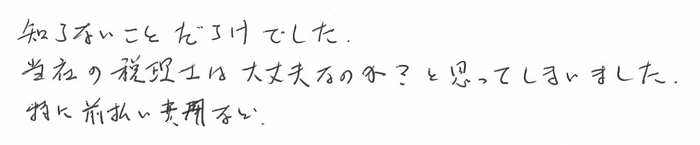 知らないことだらけでした.
当社の税理士は大丈夫なのか?と思ってしまいました.
特に前払い費用など.